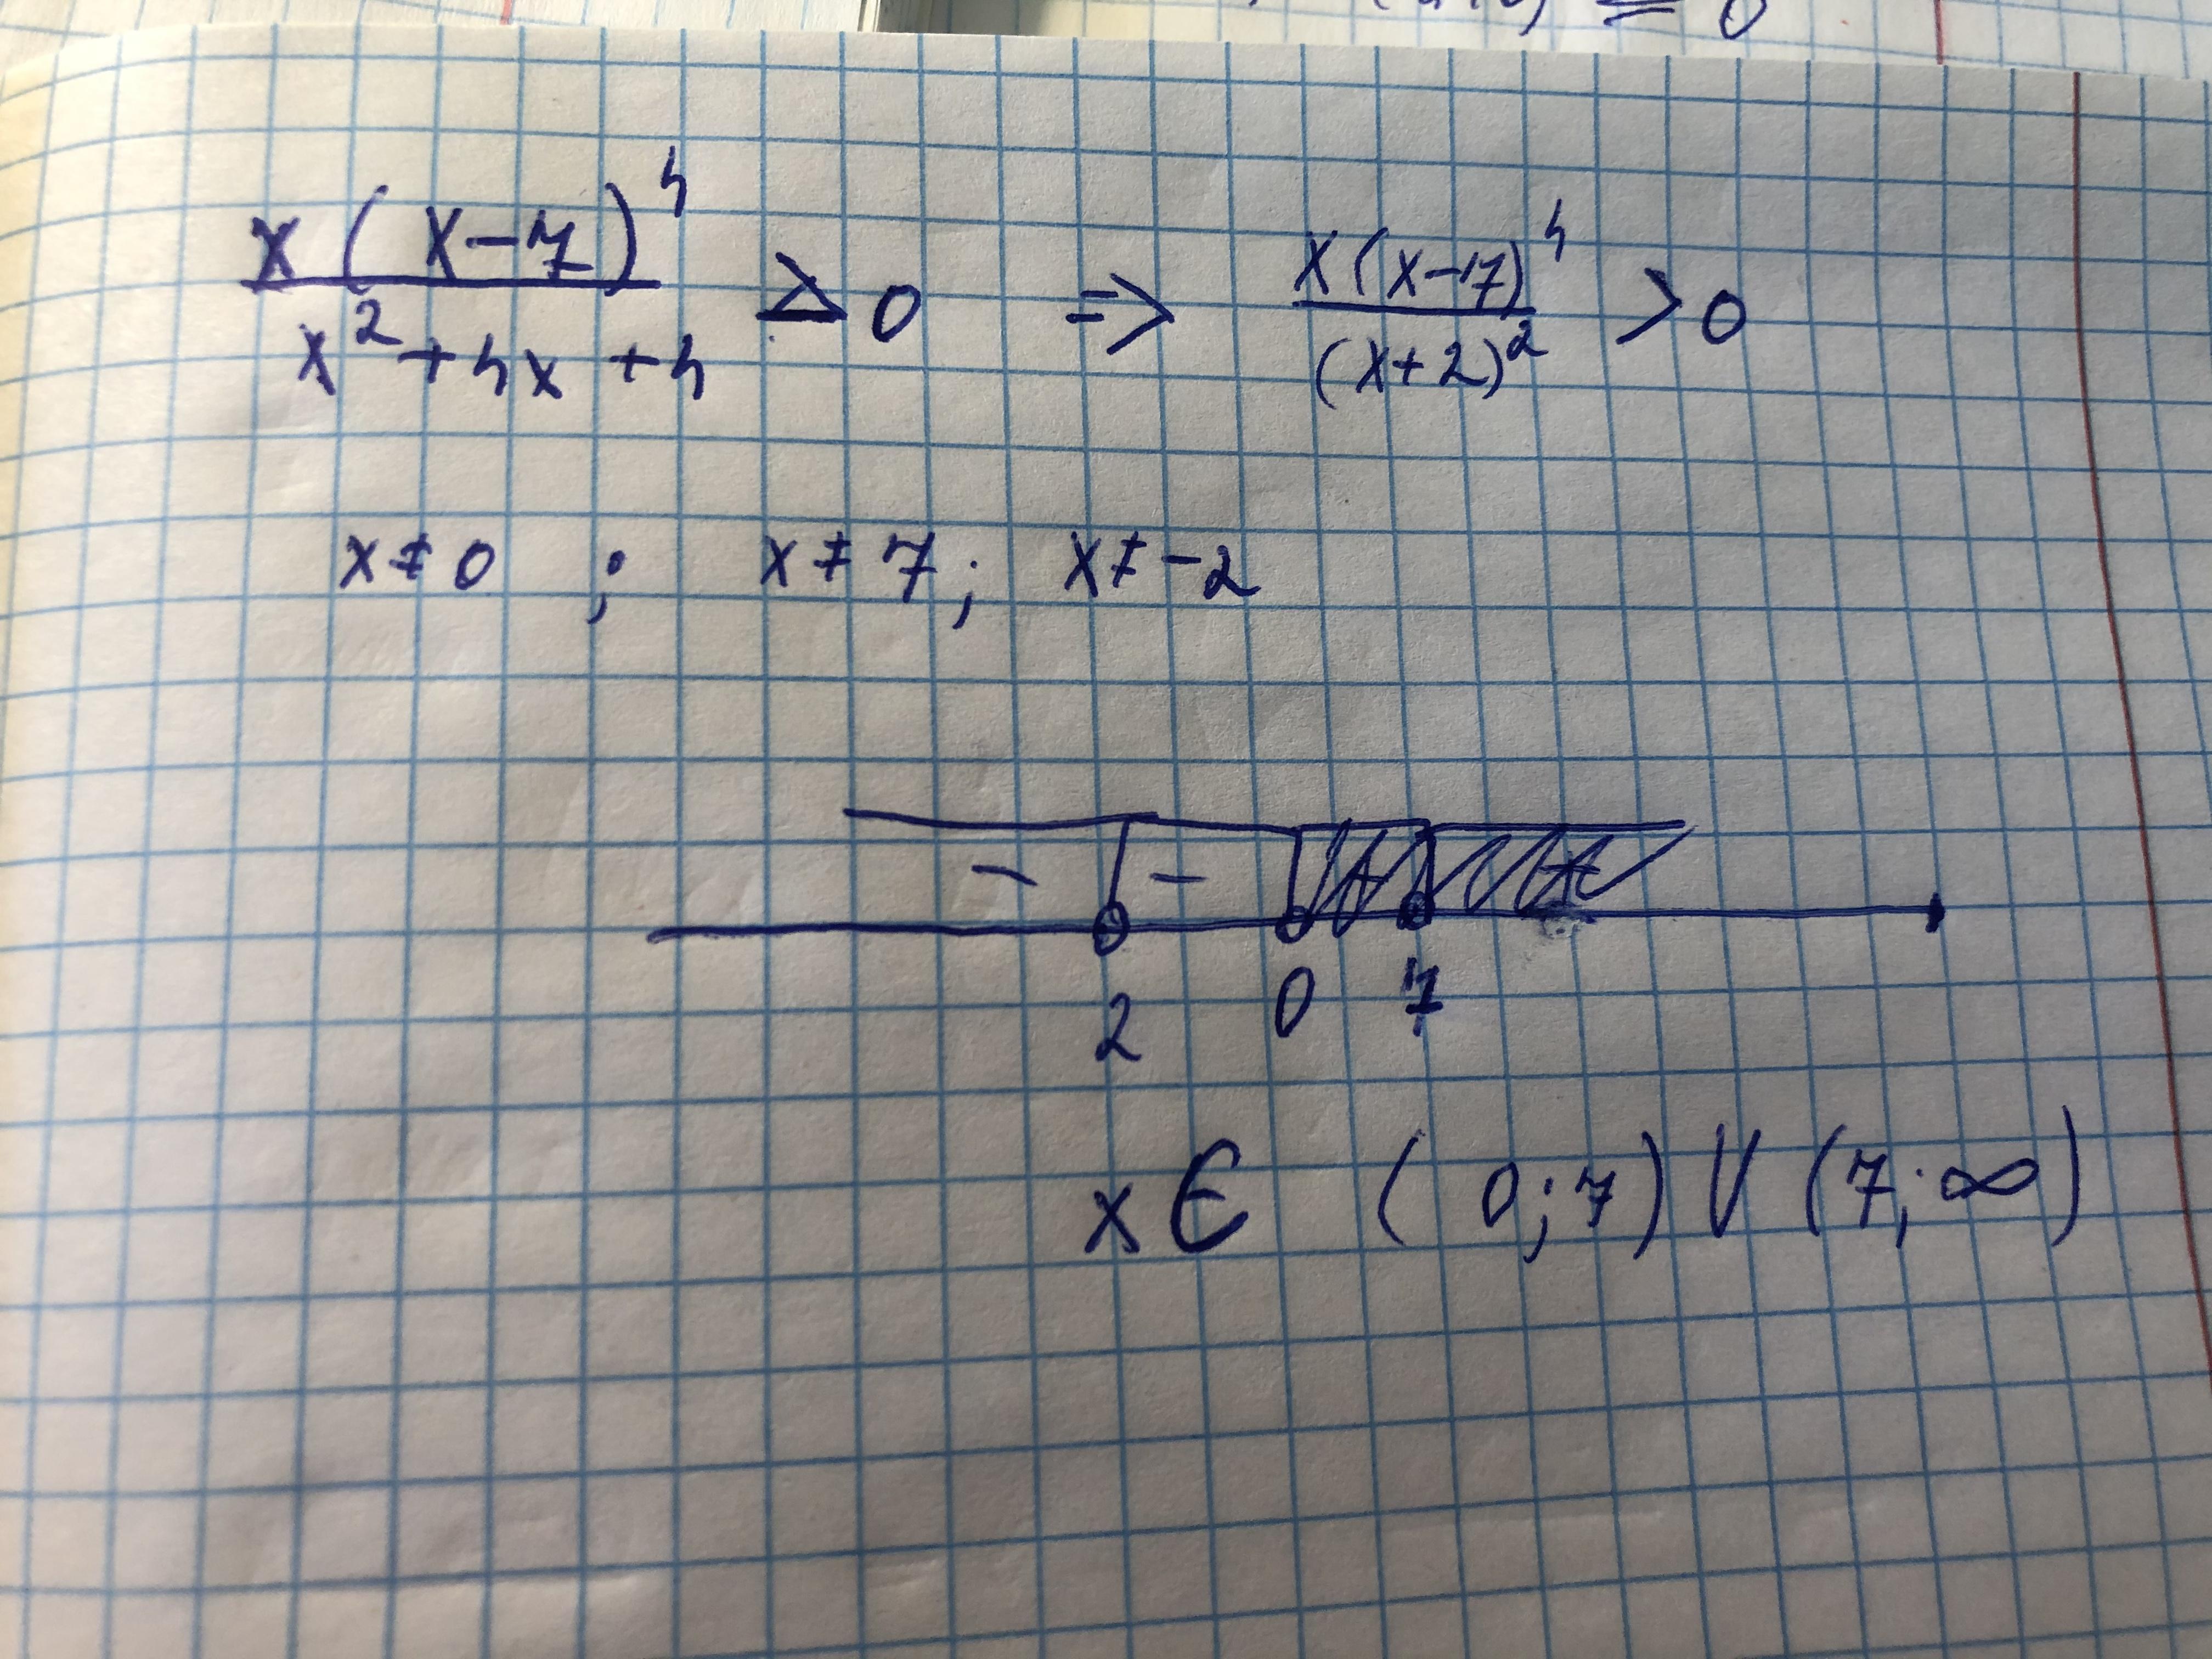 x(x-7)^4/(x^2+4x+4) ≥ 0 => x(x-17)^4/(x+2)^2 > 0
x≠0 ; x≠7; x≠-2
- - + +
2 0 7
x∈ (0;7)∪(7;∞)